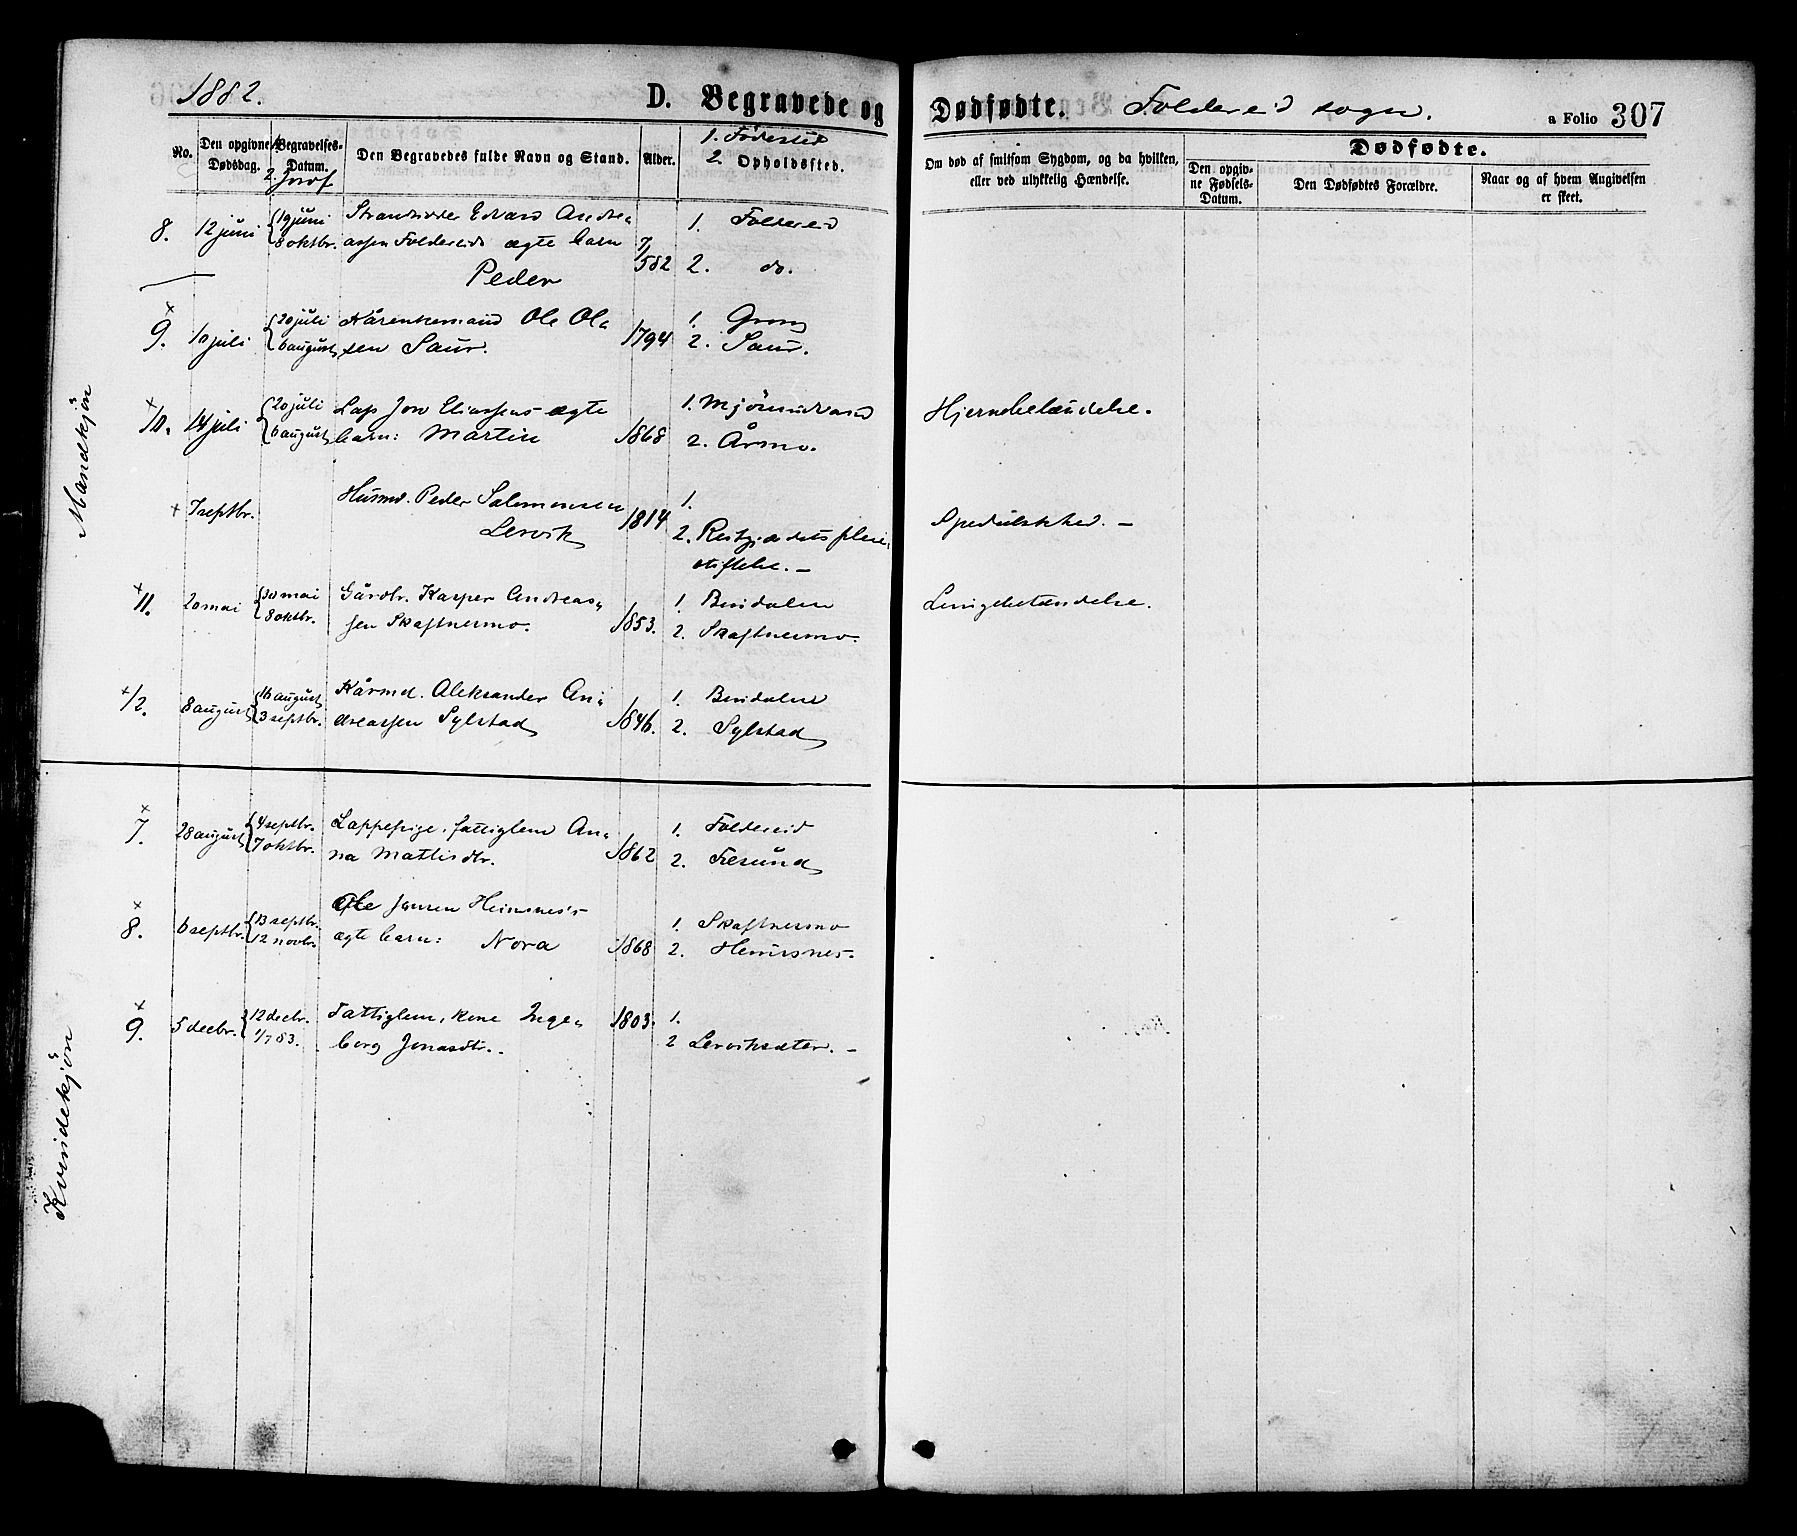 1882. D. Begravede og Dødfødte. Foldereid sogn. a Folio 307
No. Den opgivne Dødsdag. 1. Begravelses-Datum. 2. Jordf. Den Begravedes fulde Navn og Stand. Alder. 1. Fødested 2. Opholdssted.
Om død af smitsom Sygdom, og da hvilken, eller ved ulykkelig Hændelse.
Dødfødte.
Den opgivne Fødsels-Datum. Den Dødfødtes Forældre. Naar og af hvem Angivelsen er skeet.
Mandkjön
8. 12 juni 19 juni Strandsidder Edvard Andre-
8 oktbr. assen Foldereids ægte barn 7/5 82 1. Foldereid
Peder 2. do.
x 9. 10 juli 20 juli Kårenkemand Ole Ol- 1794 1. Grong
6 august sen Saur. 2. Saur.
x 10. 14 juli 20 juli Lap Jon Eliassens ægte 1. Mjösundvand Hjernebetændelse.
6 august barn: Martin 1868 2. Årmo.
x 7 septbr. Husmd. Peder Salomonsen 1814 1.
Lervik 2. Reitgjærdets pleie- Spedalskhed. –
stiftelse. –
x 11. 20 mai 30 mai Gårdbr. Kasper Andreas- 1. Bindalen Lungebetændelse.
8 oktbr. sen Skaftnesmo. 1853. 2. Skaftnesmo.
x 12. 8 august 16 august Kårmd. Aleksander An- 1. Bindalen
3 septbr. dreassen Sylstad 1846. 2. Sylstad
Kvindekjön
x 7. 28 august 4 septbr. Lappepige, fattiglem An- 1. Foldereid
7 oktbr. na Mattisdtr. 1862 2.
x 8. 6 septbr. 13 septbr. Ole Jonsen Heimsnes's 1. Skaftnesmo
12 novbr. ægte barn: Nora 1868 2. Heimsnes.
x 9. 5 decbr. 12 decbr. Fattiglem, kone Inge- 1803. 1.
1/7 83. borg Jonasdtr. 2 Lerviksæter. –